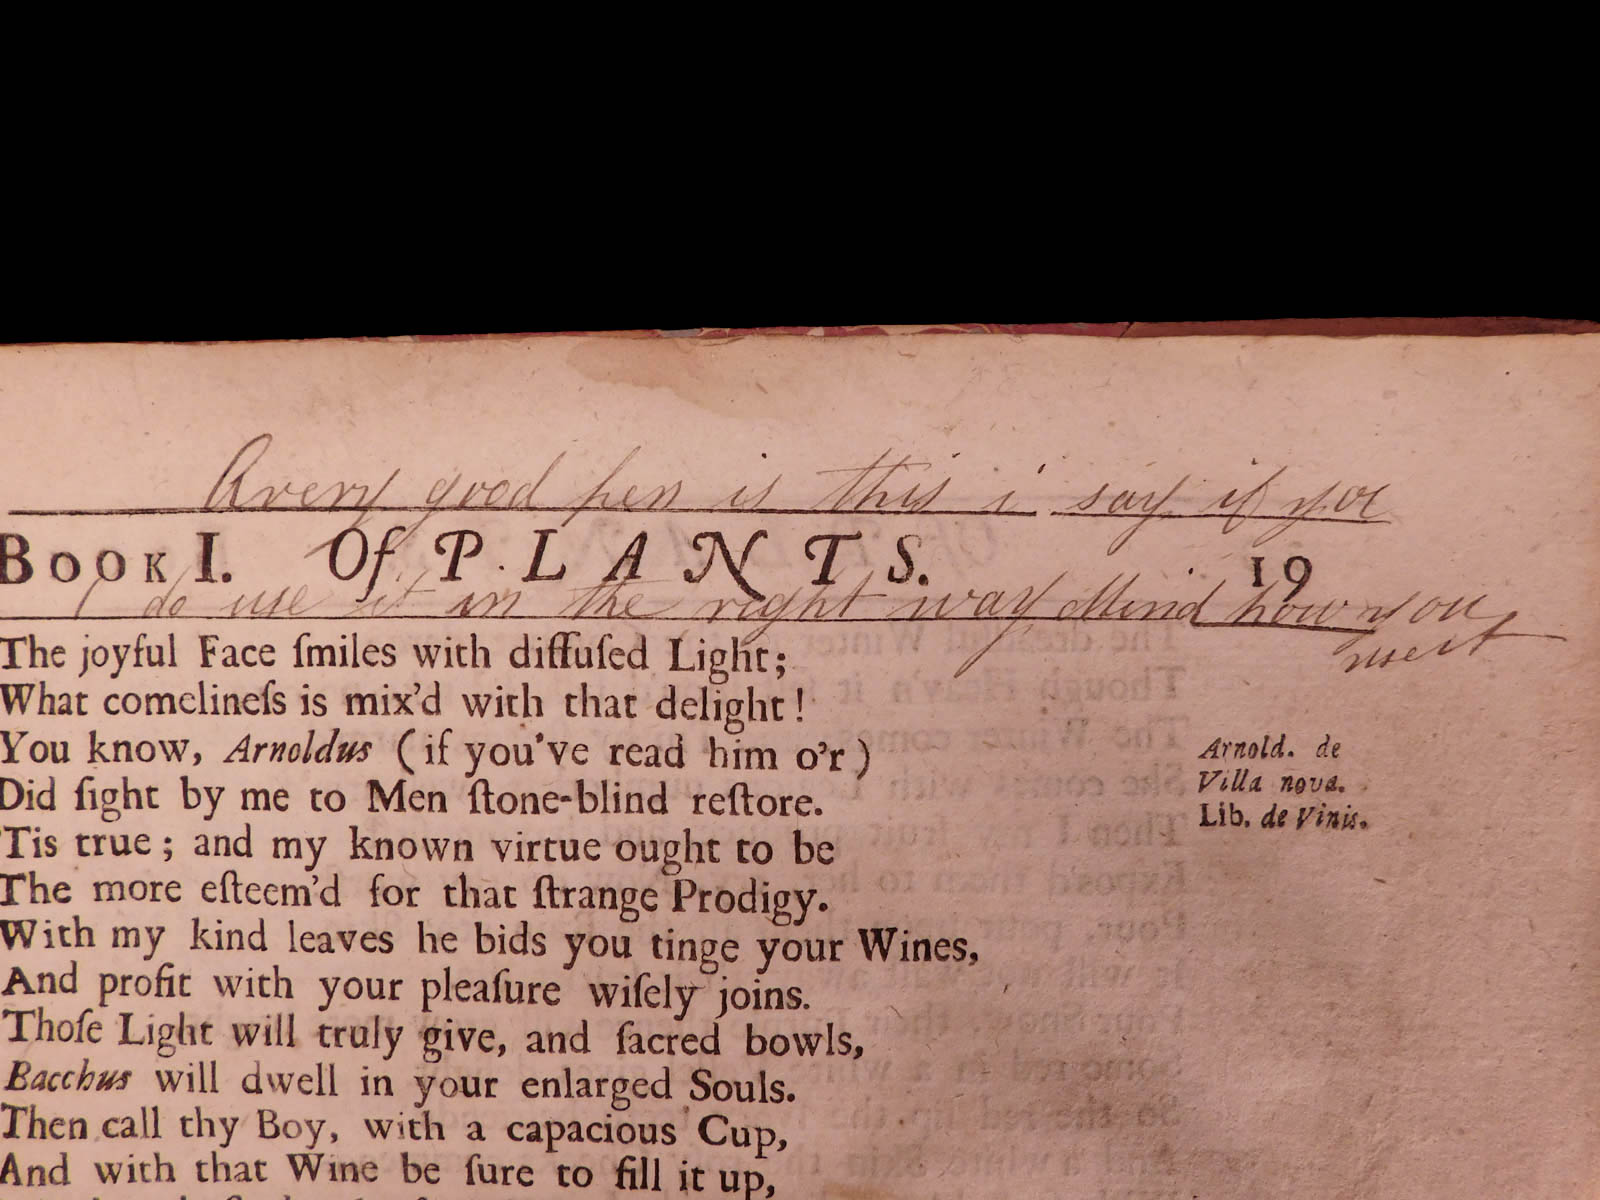 A very good pen is this i say if you
BOOK I. Of PLANTS. 19
do use it in the right way Mind how you
use it
The joyful Face ſmiles with diffuſed Light;
What comelineſs is mix'd with that delight!
You know, Arnoldus (if you've read him o'r)
Did ſight by me to Men ſtone-blind reſtore.
'Tis true; and my known virtue ought to be
The more eſteem'd for that ſtrange Prodigy.
With my kind leaves he bids you tinge your Wines,
And profit with your pleaſure wiſely joins.
Thoſe Light will truly give, and ſacred bowls,
Bacchus will dwell in your enlarged Souls.
Then call thy Boy, with a capacious Cup,
And with that Wine be ſure to fill it up,
Arnold. de
Villa nova.
Lib. de Vinis.